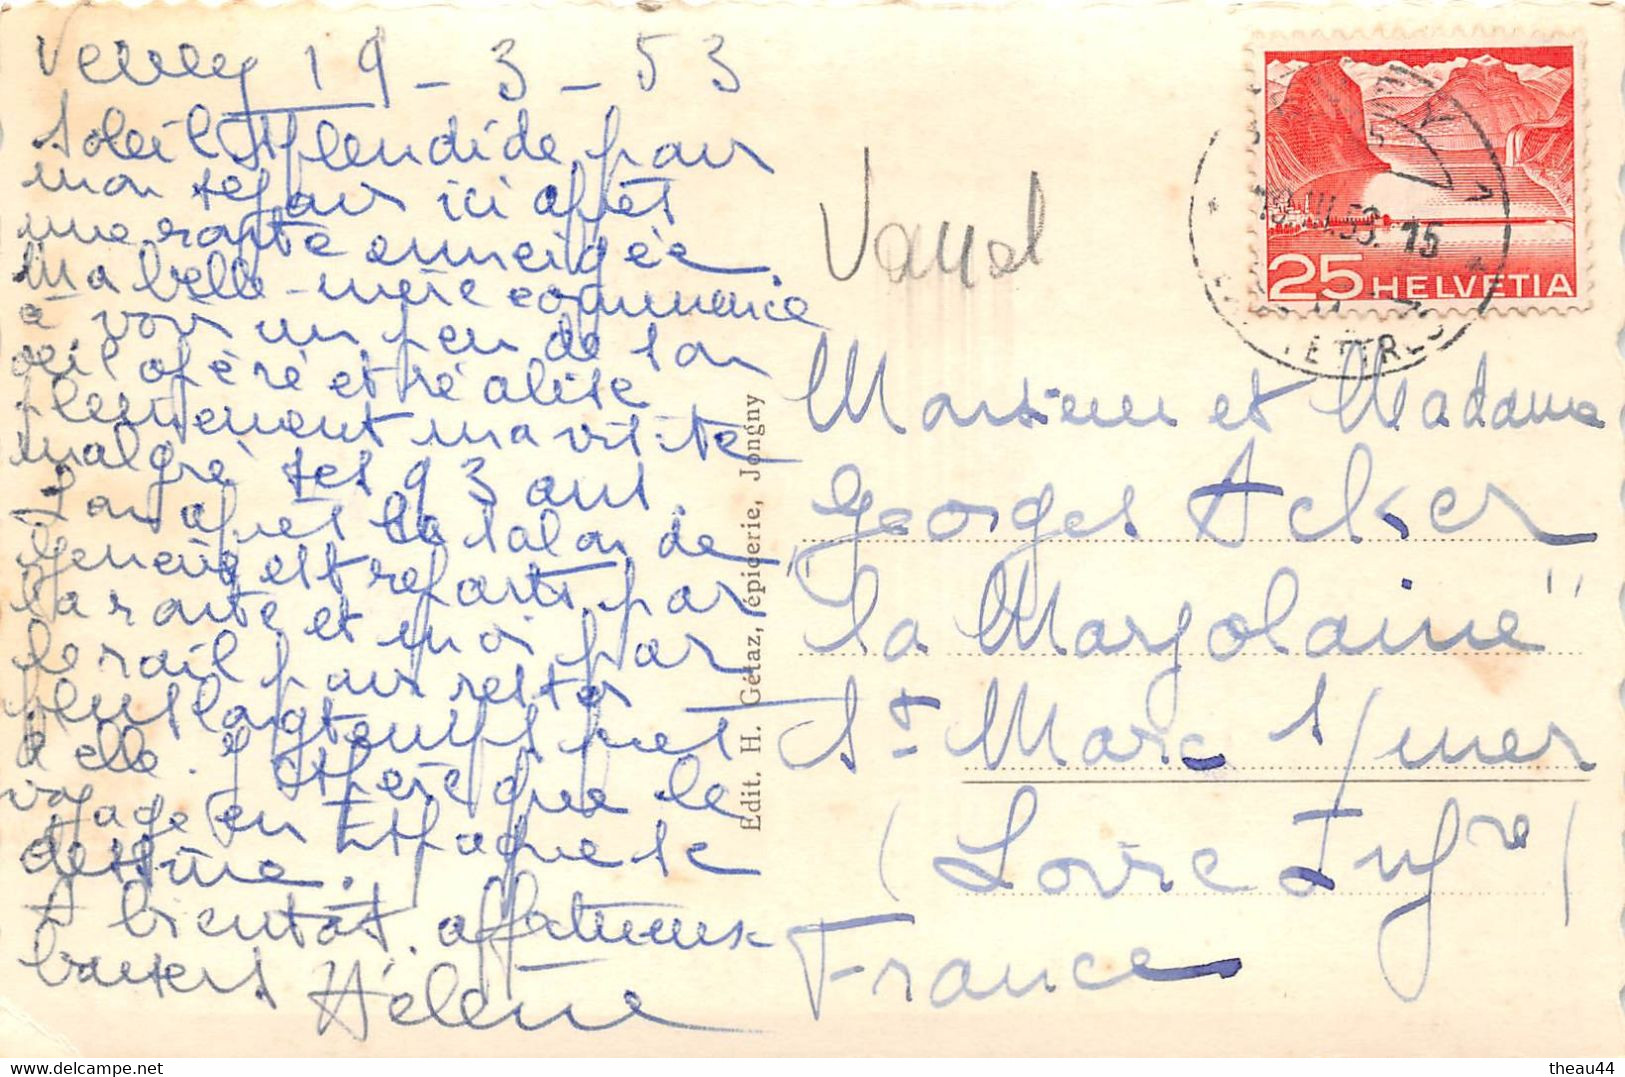 Vevey 19-3-53
Soleil splendide pour
mon séjour ici après
une route enneigée.
Ma belle-mère commence
à voir un peu de son
œil opéré et réalise
pleinement ma visite
malgré ses 93 ans.
après le salon de
Genève est reparti par
la route et moi par
le rail pour rester
plus longtemps près
d'elle. J'espère que le
voyage en Espagne se
dessine.
A bientôt, affectueux
baisers Hélène
Edit. H. Gétaz, épicerie, Jongny
25 HELVETIA
VEVEY
19.III.53. 15
LETTRES
Monsieur et Madame
Georges Acker
"la Marjolaine"
St. Marc s/mer
(Loire Infre)
France
theau44